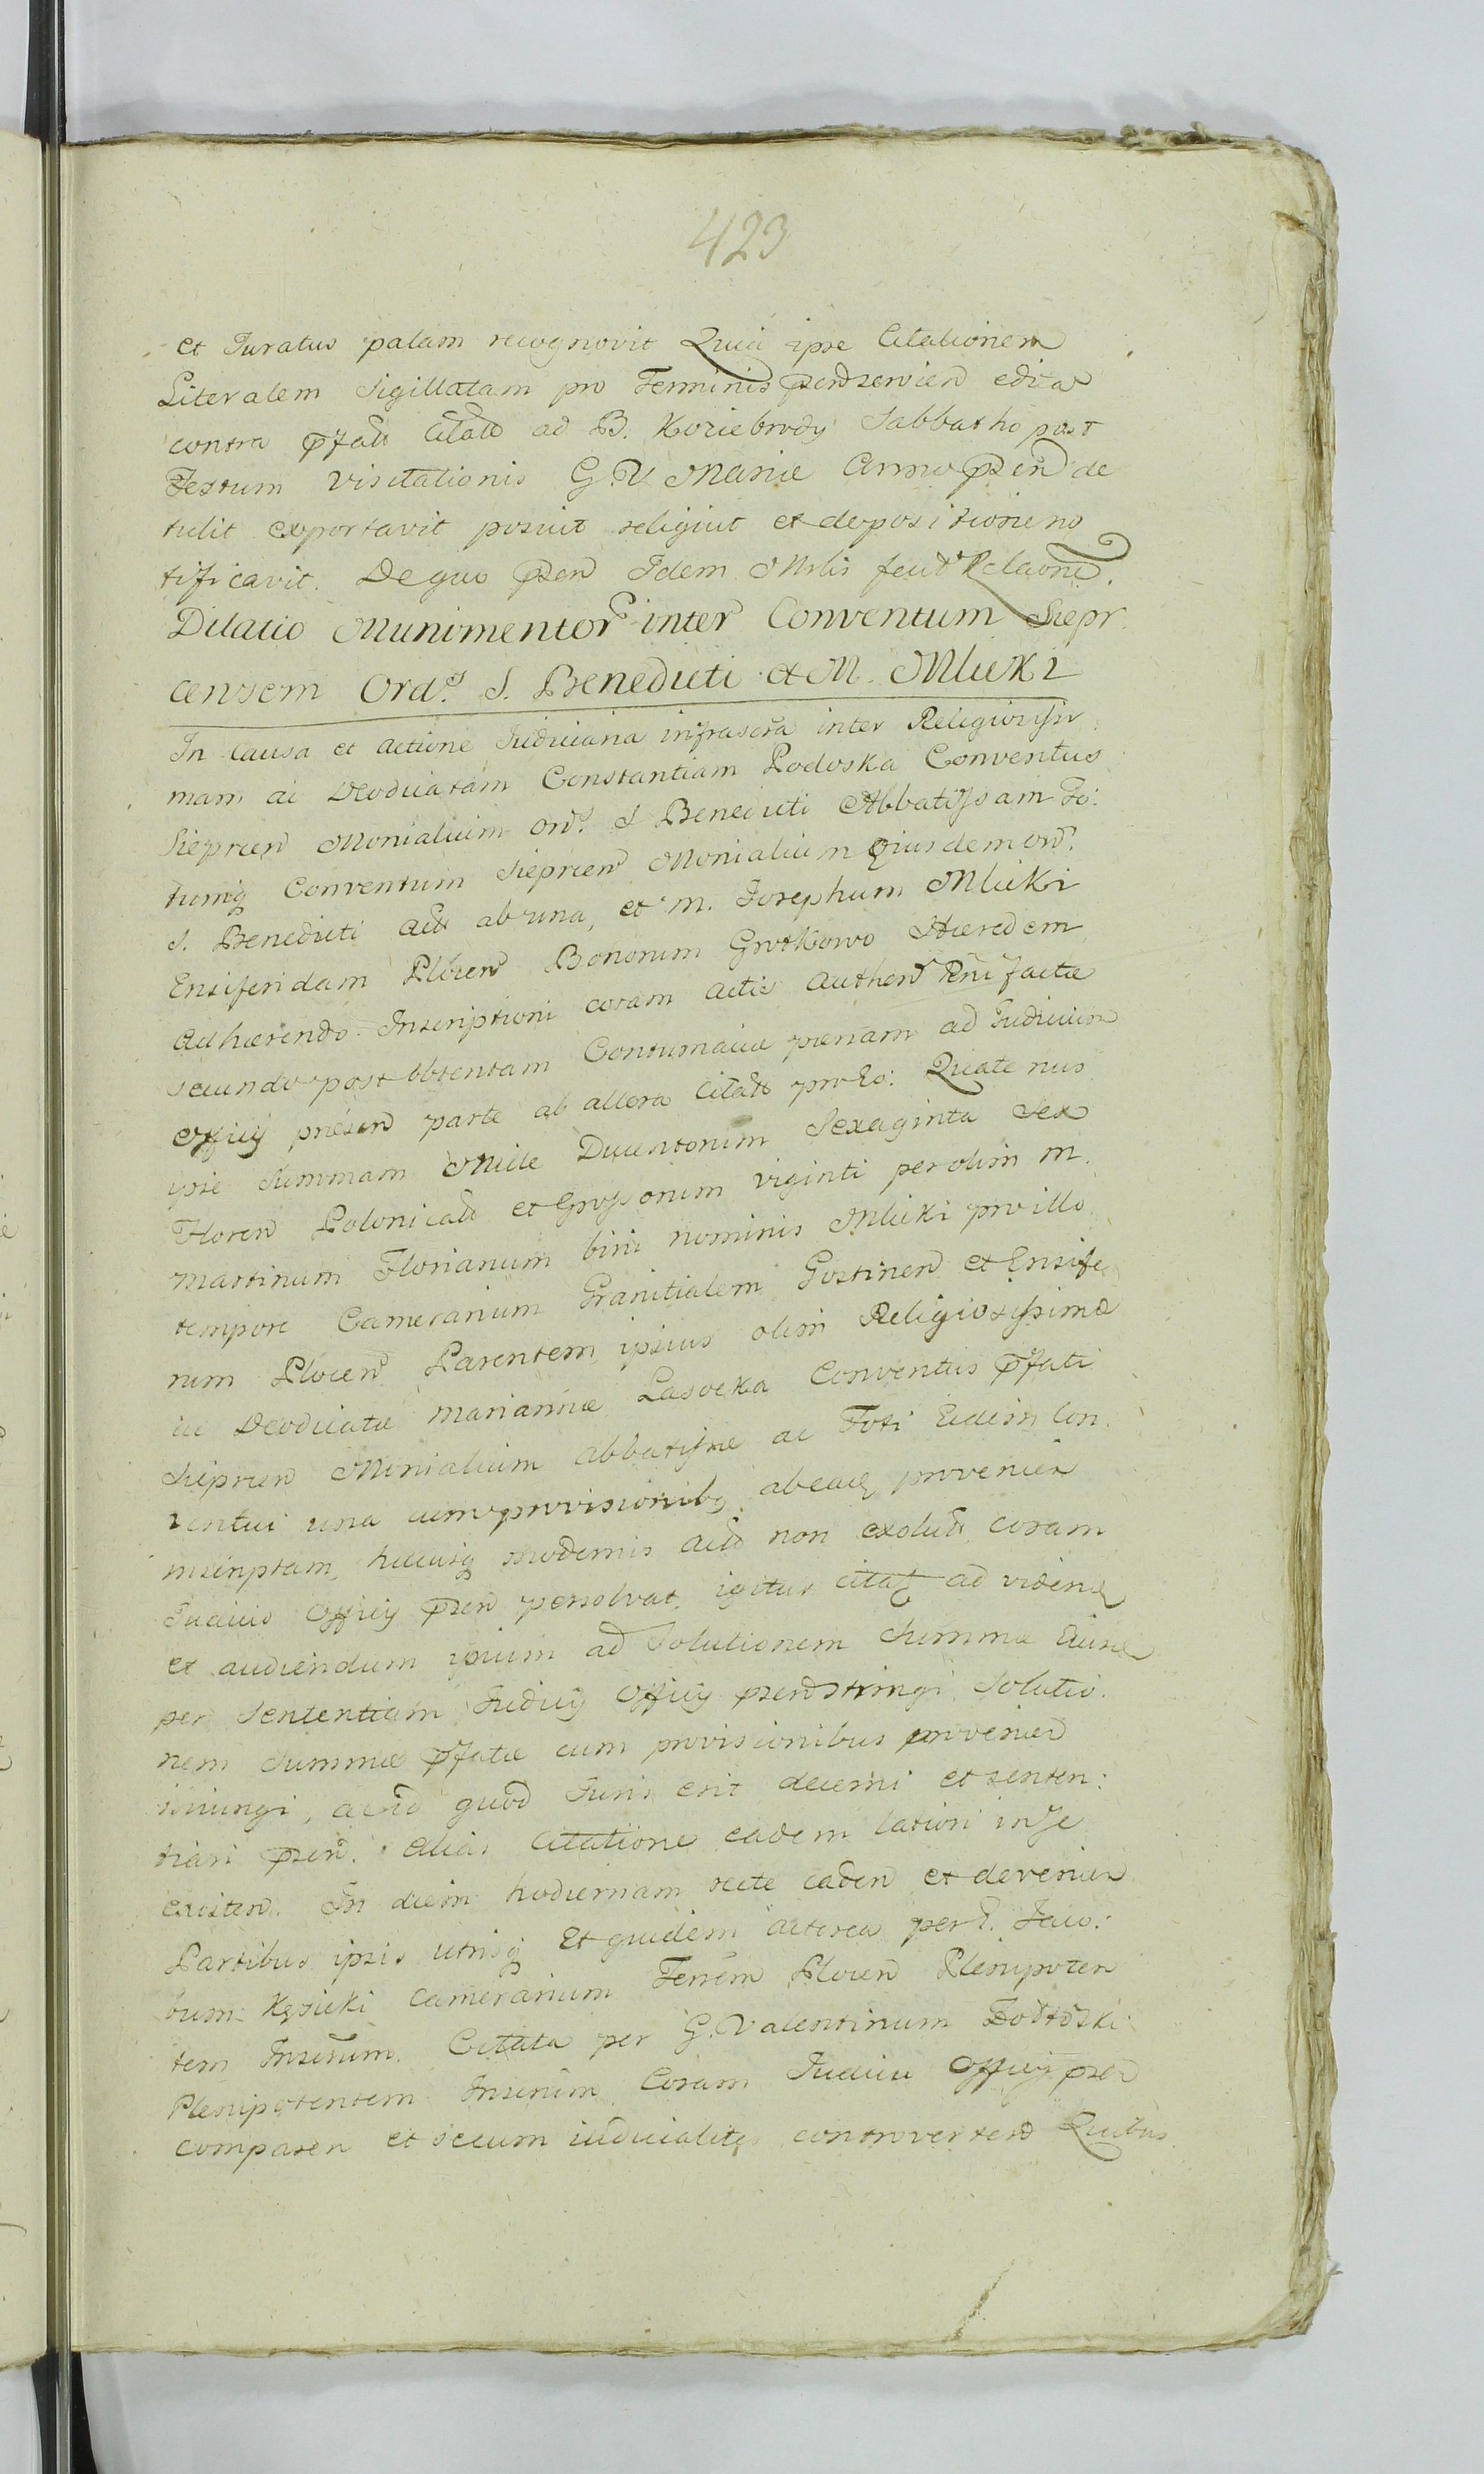 423
et Juratus palam recognovit Quia ipse Citationem
Literalem Sigillatam pro Terminis edita
contra ad B. Koziebrody Sabbatho post
Festum Visitationis G. V. Mariæ Anno de
tulit exportavit posuit religuit et depositione no
tificavit. De quo Idem
Dilatio Munimentor inter Conventum Siepr
censem Ord. S. Benedicti et M. Mlicki
In causa et actione Judiciaria infrascra inter Religiosissi
mam ac Deodicatam Constantiam Podoska Conventus
Sieprcen Monialium Ord. S Benedicti Abbatissam To:
tumq Conventum Sieprcen Monialium Ejusdem Ord.
S. Benedicti ab una, et M. Josephum Mlicki
Ensiferidam Plocen Bonorum Grotkowo Hæredem
Adhærendo Inscriptioni coram actis Authen factæ
secundo post obtentam Contumaciæ pænam ad Judicium
Officij præsen parte ab altera Quatenus
ipse Summam Mille Ducentorum Sexaginta Sex
Floren Polonicali et Grossorum viginti per olim M.
Martinum Florianum bini nominis Mlicki pro illo
tempore Camerarium Granitialem Gostinen et Ensife
rum Plocen Parentem ipsius olim Religiosissimæ
ac Deodicatæ Mariannæ Lasocka Conventus
Sieprcen Monialium Abbatissæ ac Toti Eidem Con
ventui una cum provisionibq ab eaq provenien
inscriptam, hucusq modernis non coram
Judicio Officij persolvat, igitur ad
et audiendum ipsum ad Solutionem Summæ
per Sententiam Judicij Officij Solutio
nem Summæ cum provisionibus provenien
iniungi, quod Juris erit decerni et senten:
tiari alias Citatione eadem latiori in se
existen. In diem hodiernam recte caden et devenien
Partibus ipsis utrisq Et quidem Actorea per G. Jaco:
bum Kęsicki Camerarium Plocen Plenipoten
tem Citata per G. Valentinum
Plenipotentem Coram Judicio Officij
comparen et secum iudicialiter controverten Quibus